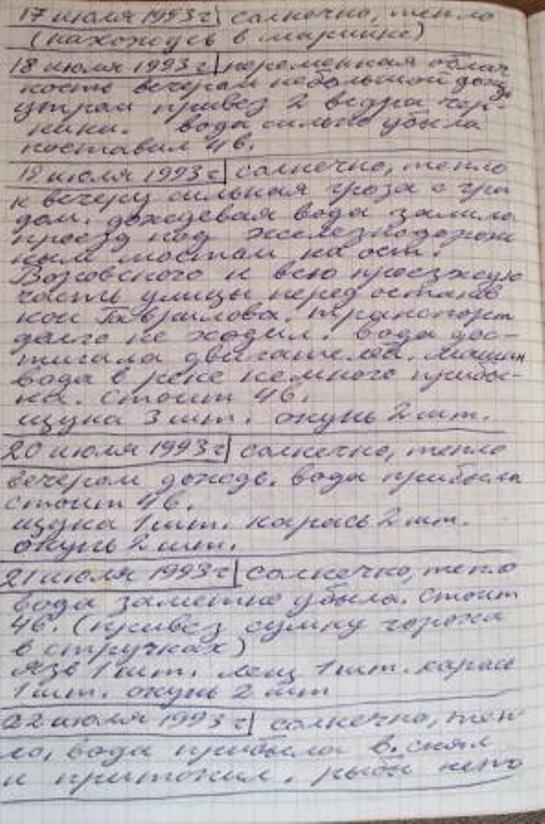 17 июля 1993 г. солнечно, тепло
(нахожусь в
18 июля 1993 г. переменная облач
ность вечером небольшой дождь
утром привез 2 ведра чер-
ники. вода сильно убыла
поставил 4 в.
19 июля 1993 г. солнечно, тепло
к вечеру сильная гроза с гра
дом. дождевая вода залила
проезд под железнодорож
ным мостом на ост.
Воровского и всю проезжую
часть улицы перед останов
кой Гаврилова. транспорт
долго не ходил. вода дос-
тигала двигателей. машин
вода в реке немного прибы-
ла. стоит 4 в.
щука 3 шт. окунь 2 шт.
20 июля 1993 г. солнечно, тепло
вечером дождь. вода прибыла
стоит 4 в.
щука 1 шт. карась 2 шт.
окунь 2 шт.
21 июля 1993 г. солнечно, тепло
вода заметно убыла. стоит
4 в. (привез сумку гороха
в стручках)
язь 1 шт. лещ 1 шт. карась
1 шт. окунь 2 шт
22 июля 1993 г. солнечно, теп
ло, вода прибыла в. снял
и притопил. рыбы нето